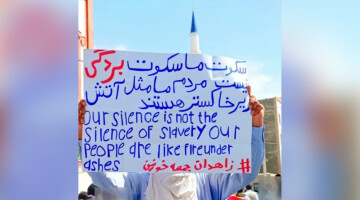 سکوت ما سکوت بردگی
نیست مردم ما مثل آتش
زیر خاکستر هستند
Our silence is not the
silence of slavery Our
People are like fire under
ashes
#زاهدان جمعه خونین